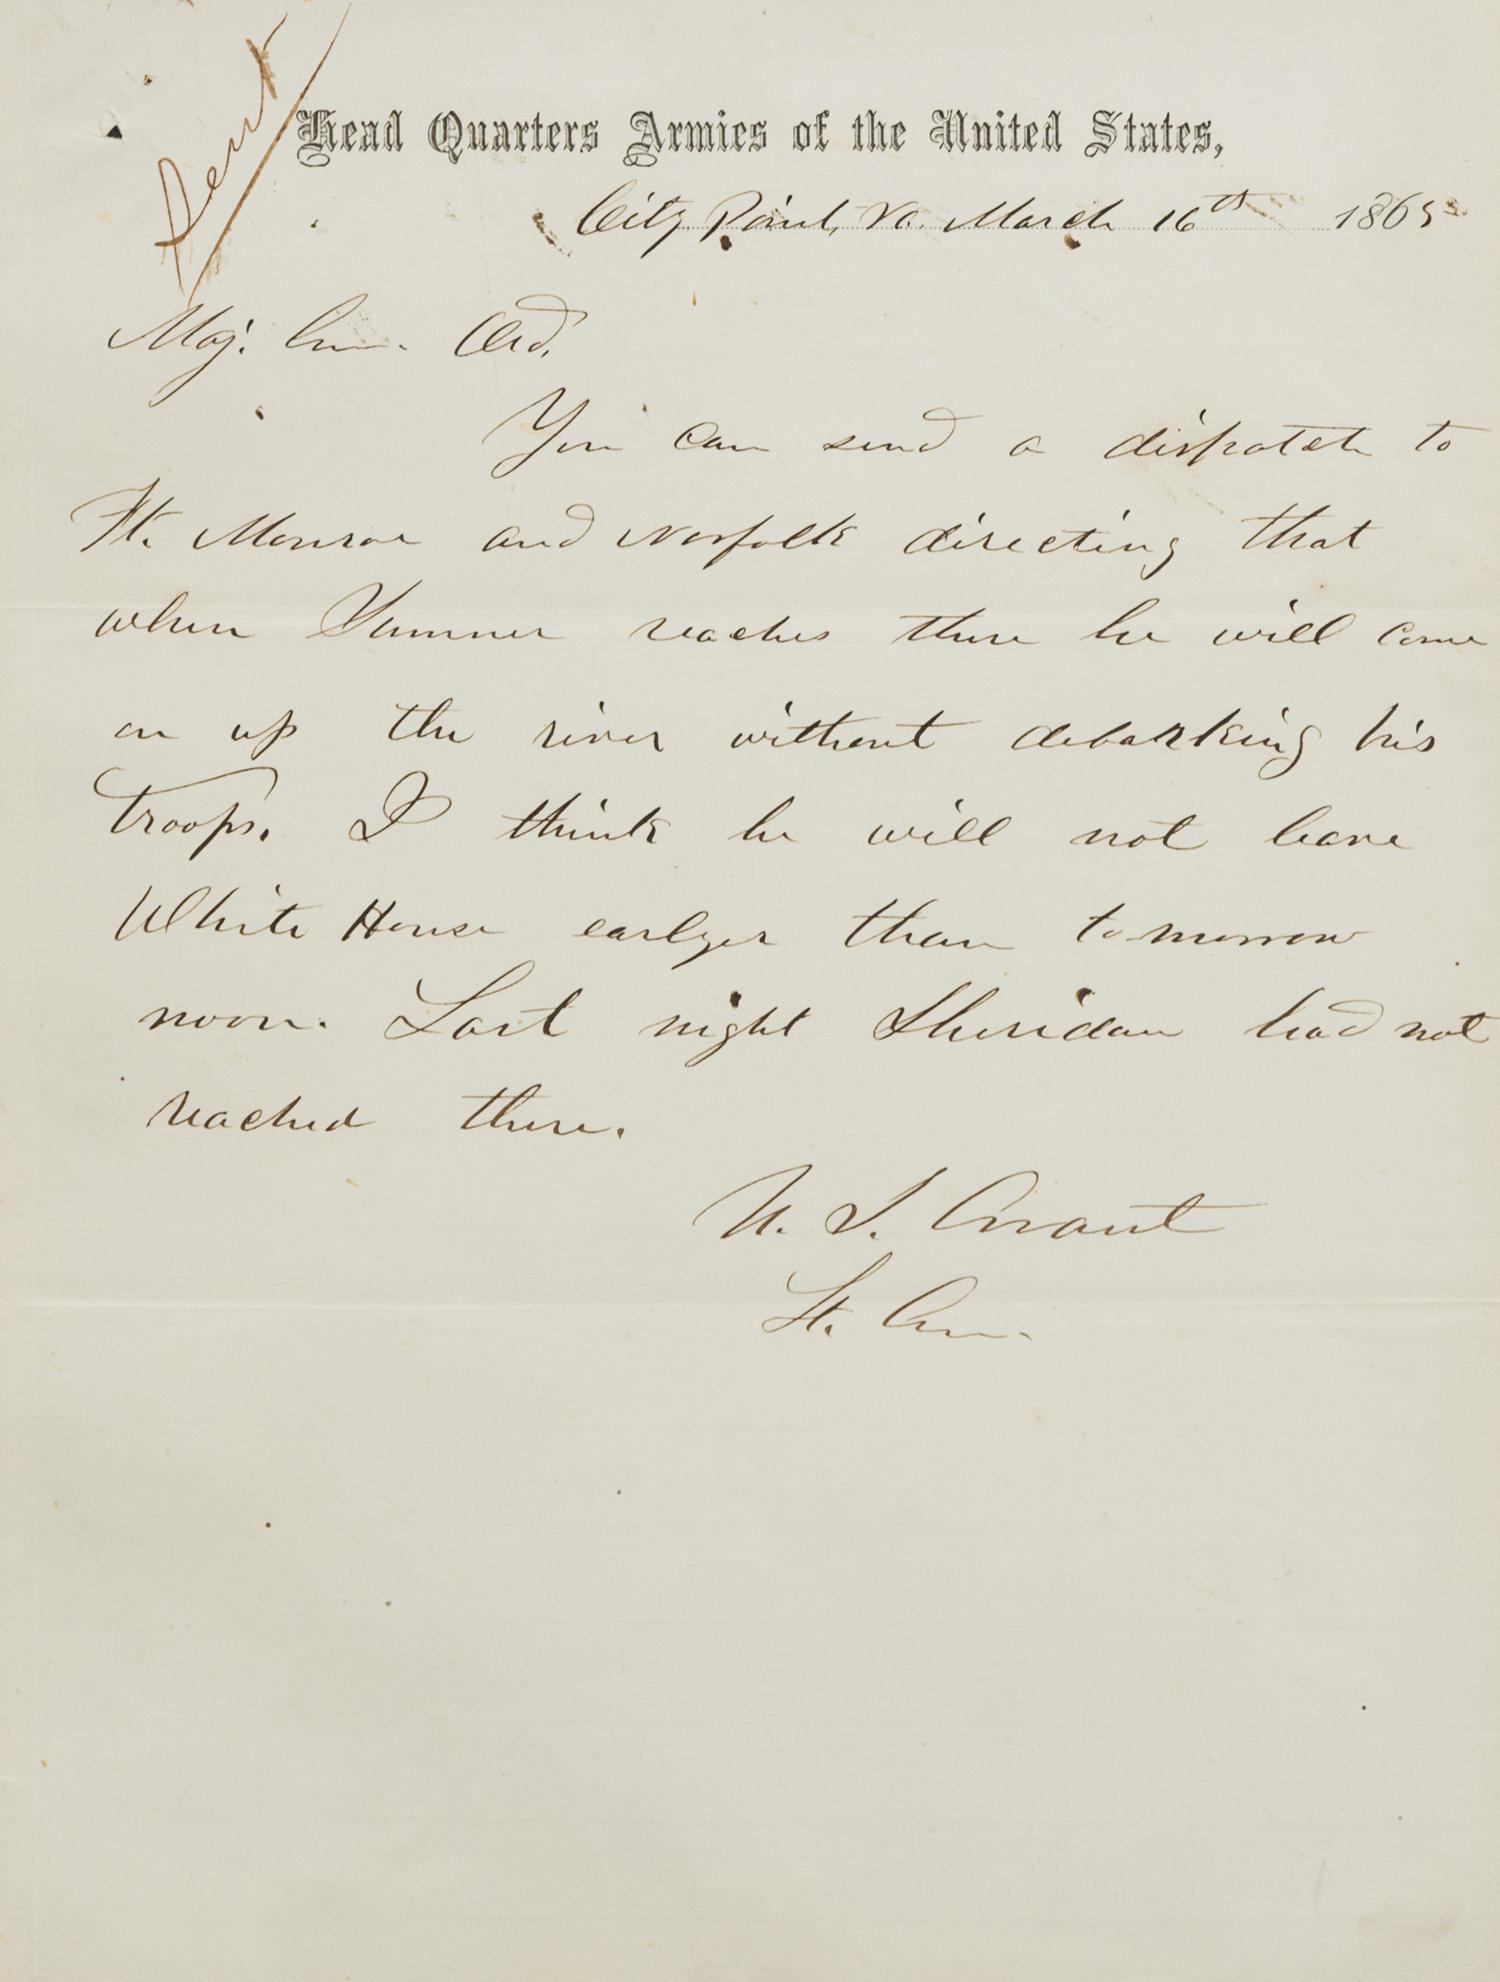 Sent
Head Quarters Armies of the United States,
City Point, Va. March 16th 1865
Maj. Gen. Ord,
You can send a dispatch to
Ft. Monroe and Norfolk directing that
when Sumner reaches there he will come
on up the river without debarking his
troops. I think he will not leave
White House earlyer than to-morrow
noon. Last night Sheridan had not
reached there.
U. S. Grant
Lt. Gen.